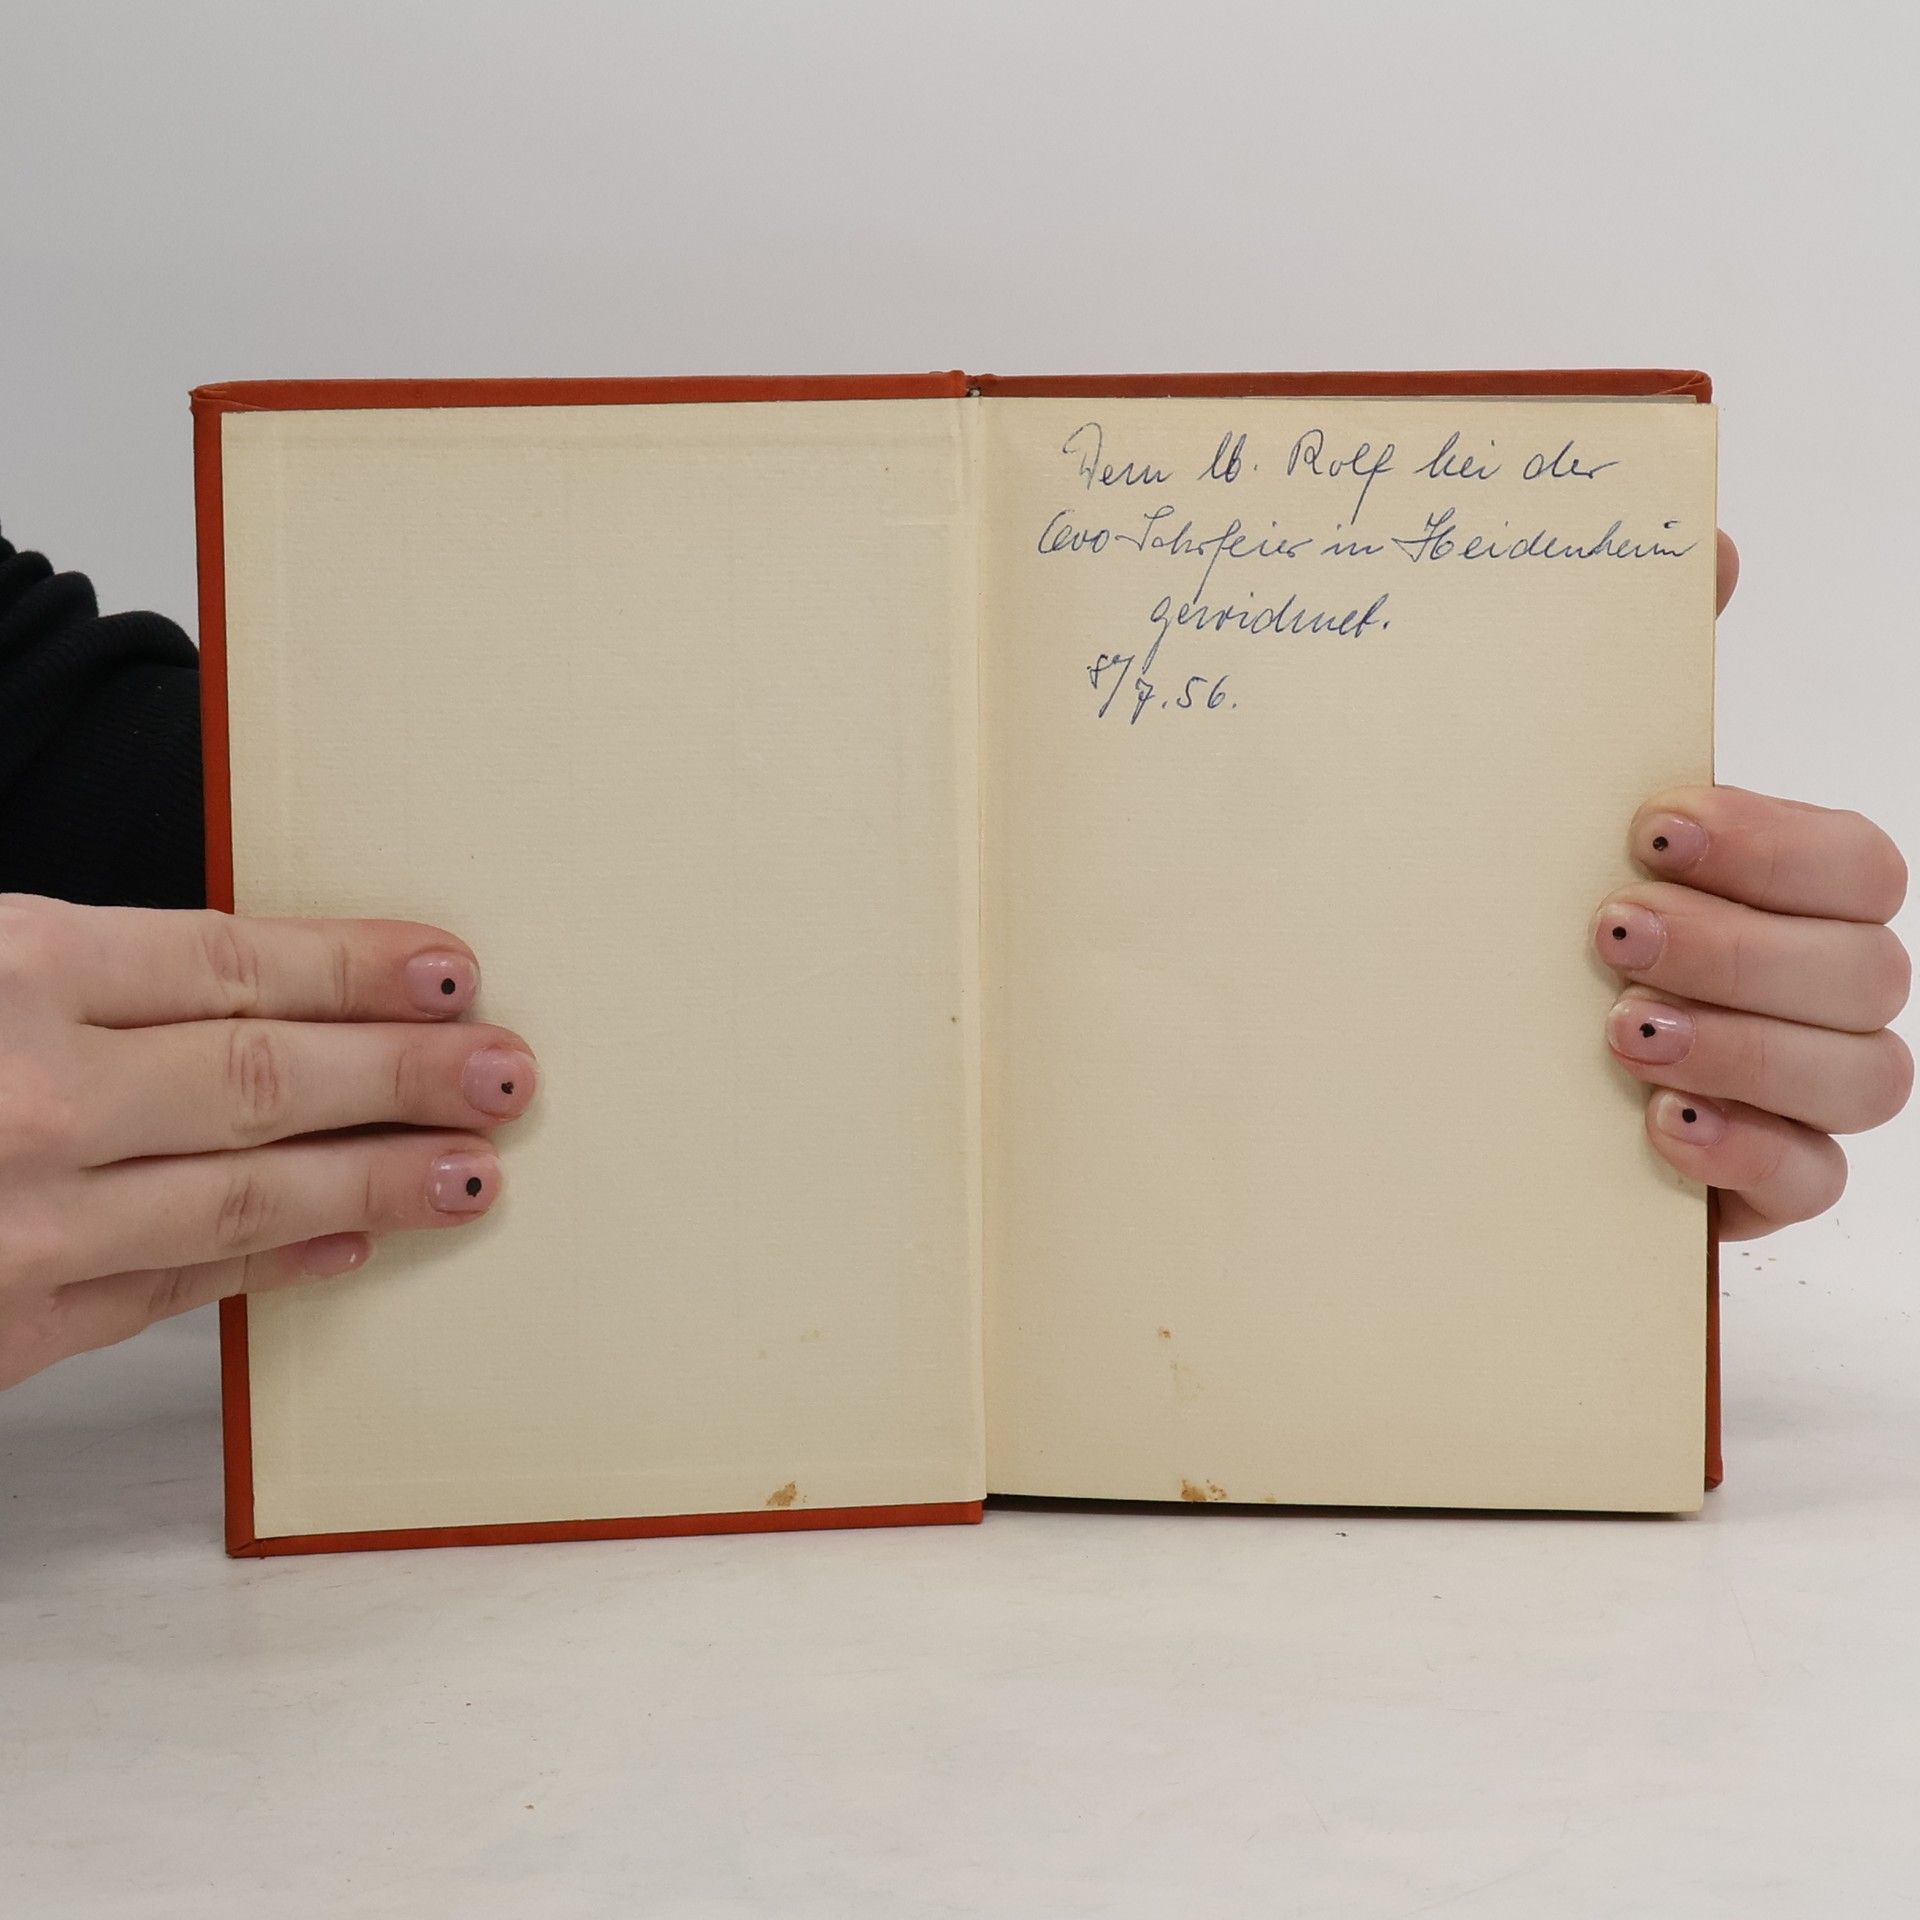 Dem lb. Rolf bei der
600-Jahrfeier in Heidenheim
gewidmet.
8/7.56.